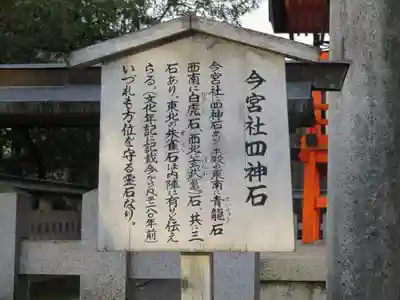 今宮社四神石
今宮社に四神石あり本殿の東南に青龍石
西南に白虎石、西北に玄武(亀)石、共に三
石あり、東北の朱雀石は内陣に有りと伝え
らる。(文化年記に記載今から凡そ二八〇年前)
いづれも方位を守る霊石なり。